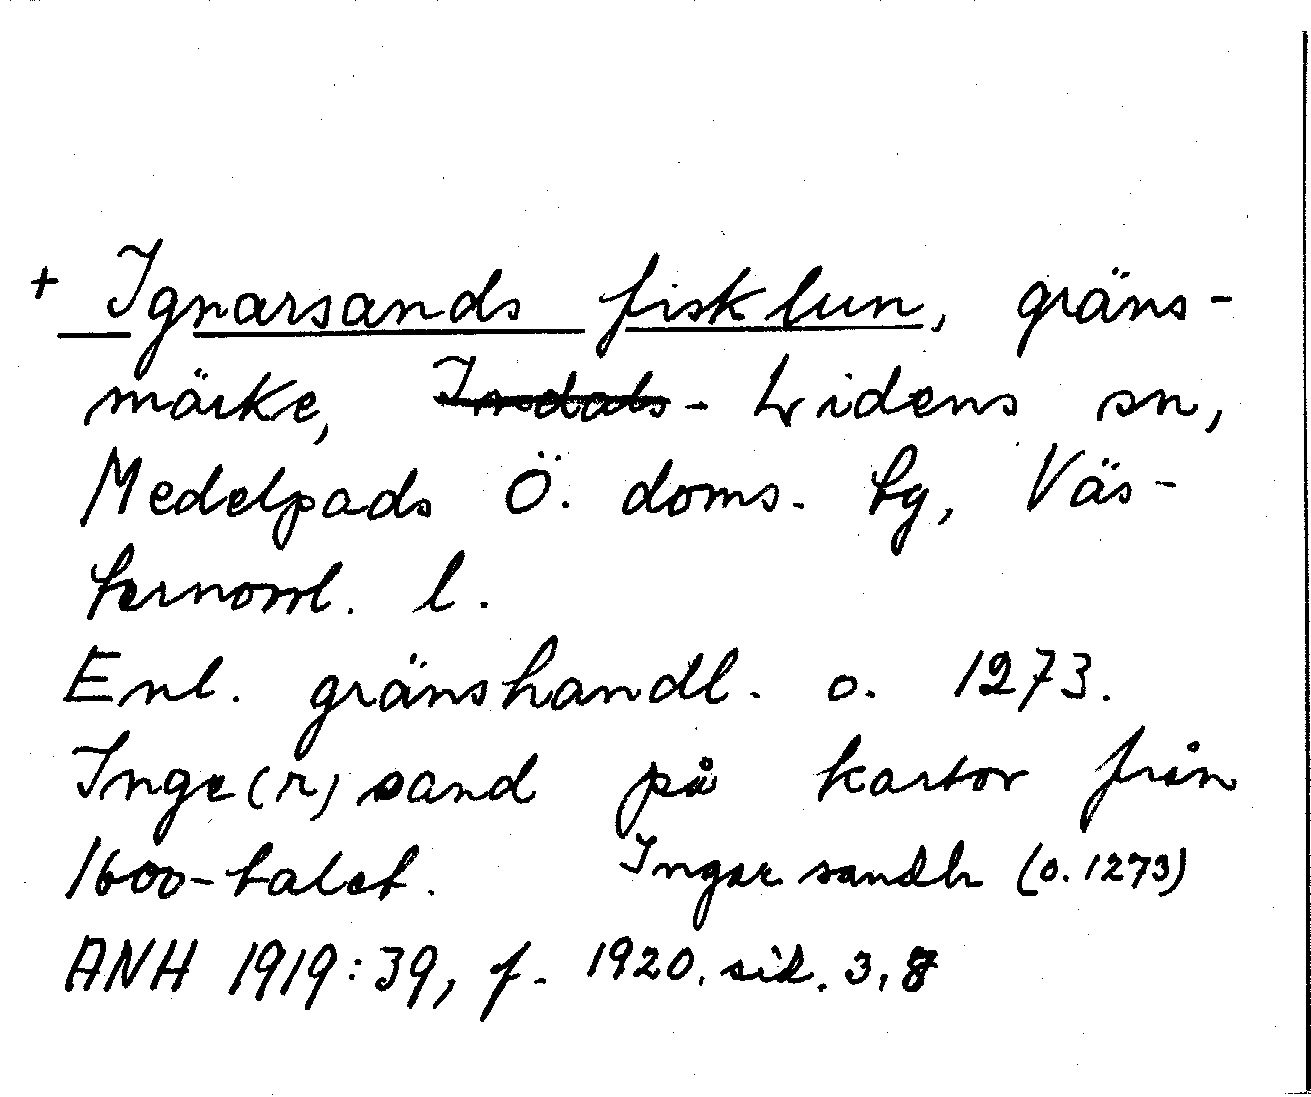 + Ignarsands fisklun, gräns-
märke, Indals- Lidens sn,
Medelpads Ö. doms. tg, Väs-
ternorrl. l.
Enl. gränshandl. o. 1273.
Inge(r)sand på kartor från
1600-talet. Ingar sandh (o. 1273)
ANH 1919:39, f. 1920. sid. 3, 8